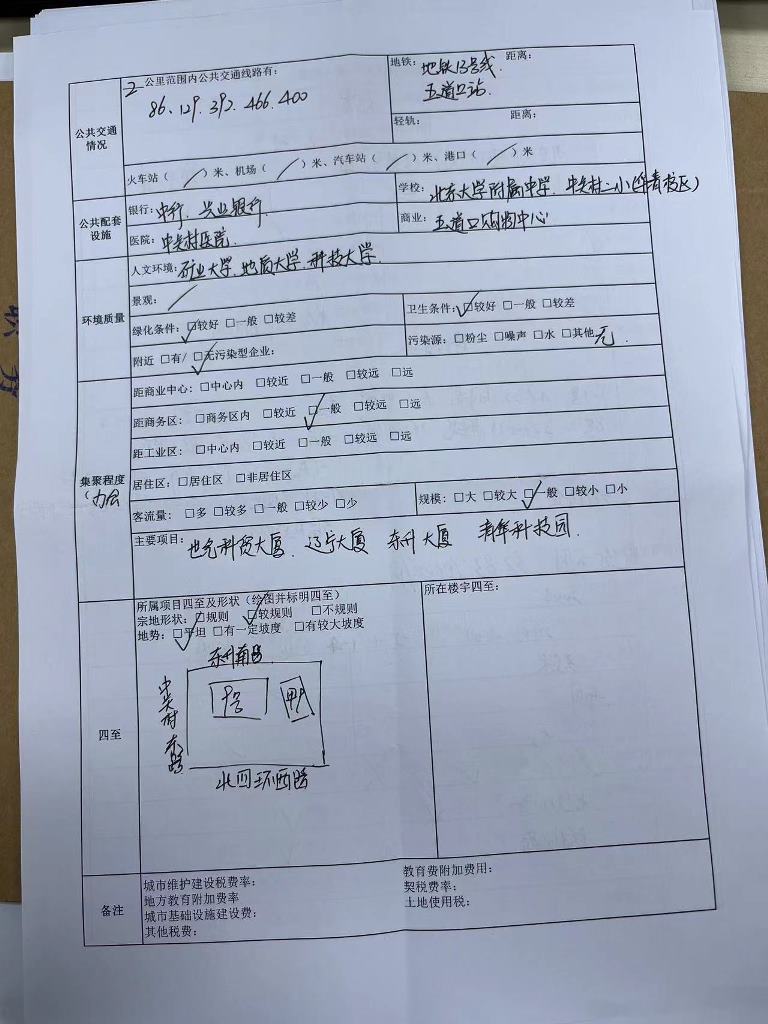 公共交通情况
2 公里范围内公共交通线路有：
86、129、392、466、400
地铁：地铁13号线、五道口站. 距离：
轻轨： 距离：
火车站（ / ）米、机场（ / ）米、汽车站（ / ）米、港口（ / ）米
公共配套设施
银行：中行、兴业银行.
学校：北京大学附属中学、中关村二小(华清校区)
医院：中关村医院.
商业：五道口购物中心
环境质量
人文环境：矿业大学、地质大学、科技大学.
景观：/
绿化条件：☑较好 □一般 □较差
卫生条件：☑较好 □一般 □较差
附近 □有/ ☑无污染型企业：
污染源：□粉尘 □噪声 □水 □其他 无.
集聚程度（办公
距商业中心：□中心内 □较近 □一般 □较远 □远
距商务区：□商务区内 □较近 ☑一般 □较远 □远
距工业区：□中心内 □较近 □一般 □较远 □远
居住区：□居住区 □非居住区
客流量：□多 □较多 □一般 □较少 □少
规模：□大 □较大 ☑一般 □较小 □小
主要项目：科贸大厦、辽宁大厦 东升大厦 青年科技园.
四至
所属项目四至及形状（绘图并标明四至）
宗地形状：□规则 ☑较规则 □不规则
地势：☑平坦 □有一定坡度 □有较大坡度
所在楼宇四至：
东升南路
中关村东路
甲
北四环西路
备注
城市维护建设税费率：
教育费附加费用：
地方教育附加费率
契税费率：
城市基础设施建设费：
土地使用税：
其他税费：